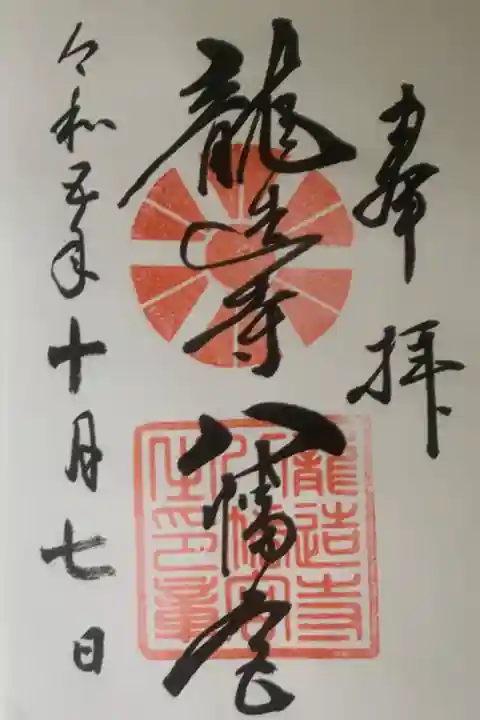 奉拝
龍造寺八幡宮
令和五年十月七日
龍造寺
八幡宮